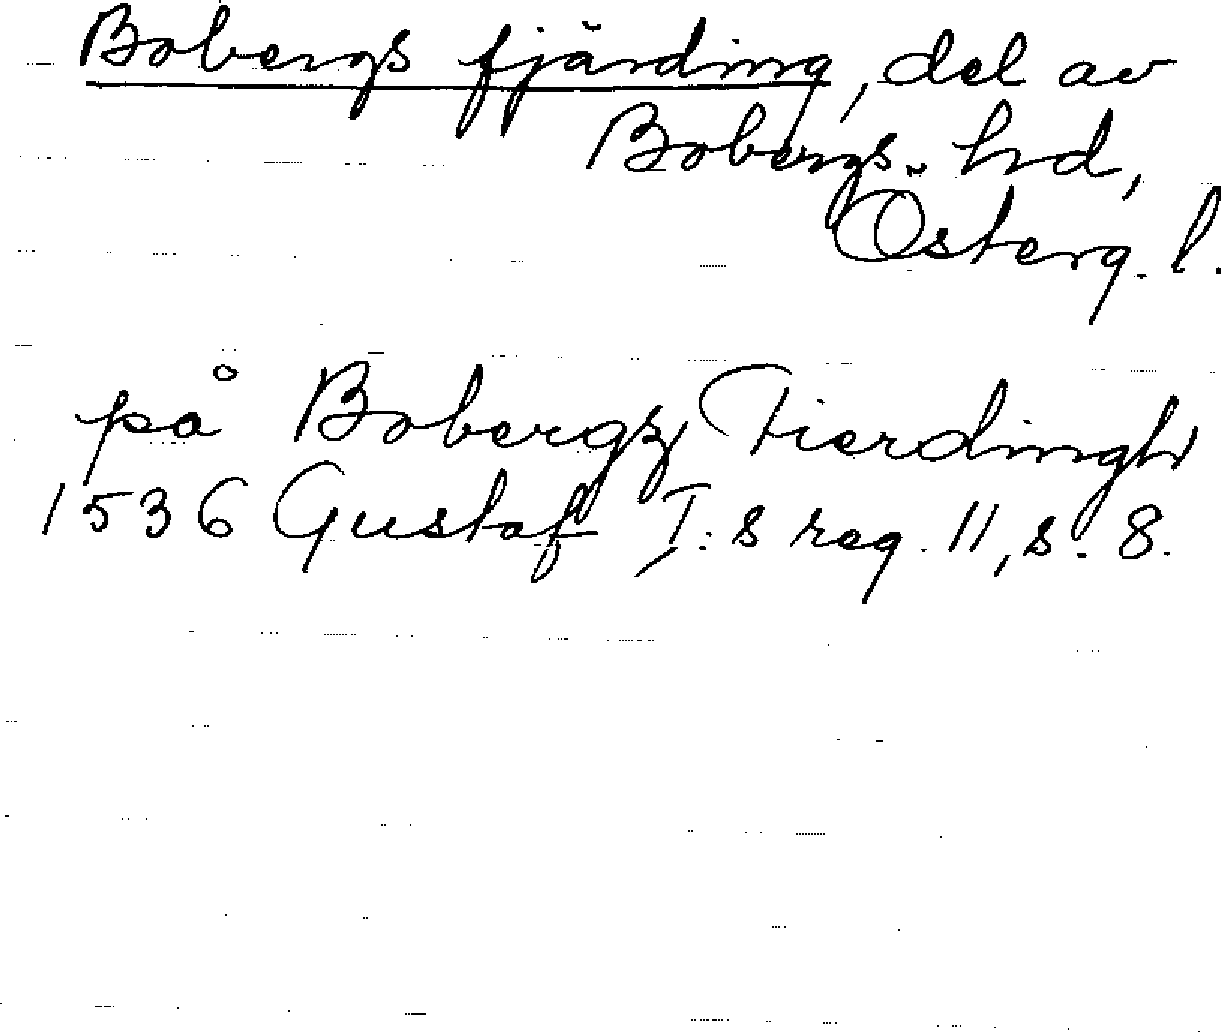 Bobergs fjärding, del av
Bobergs hd,
Österg. l.
på Bobergz Fierdingh
1536 Gustaf I:s reg. 11, s. 8.